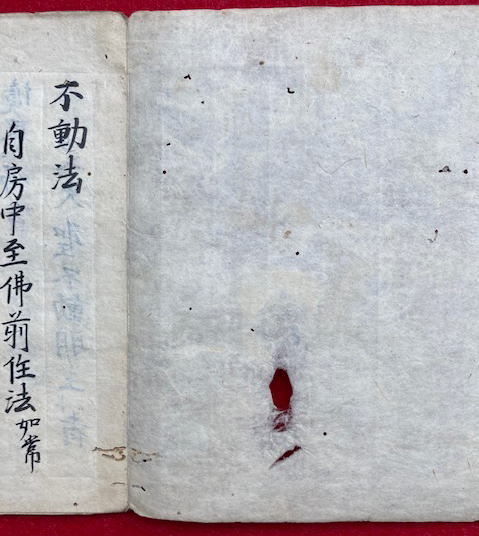 不動法
自房中至佛前住法如常